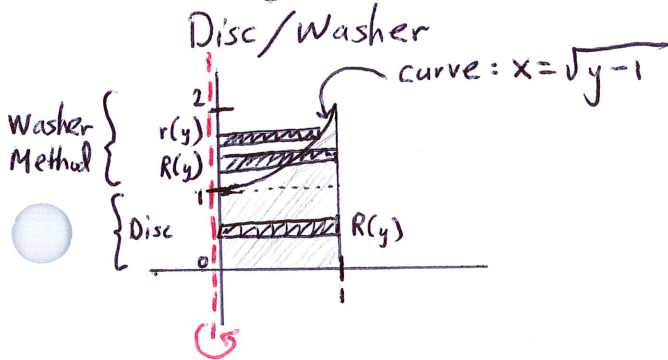 Disc/Washer
curve: x = √y-1
2
Washer Method
r(y)
R(y)
1
Disc
R(y)
0
1